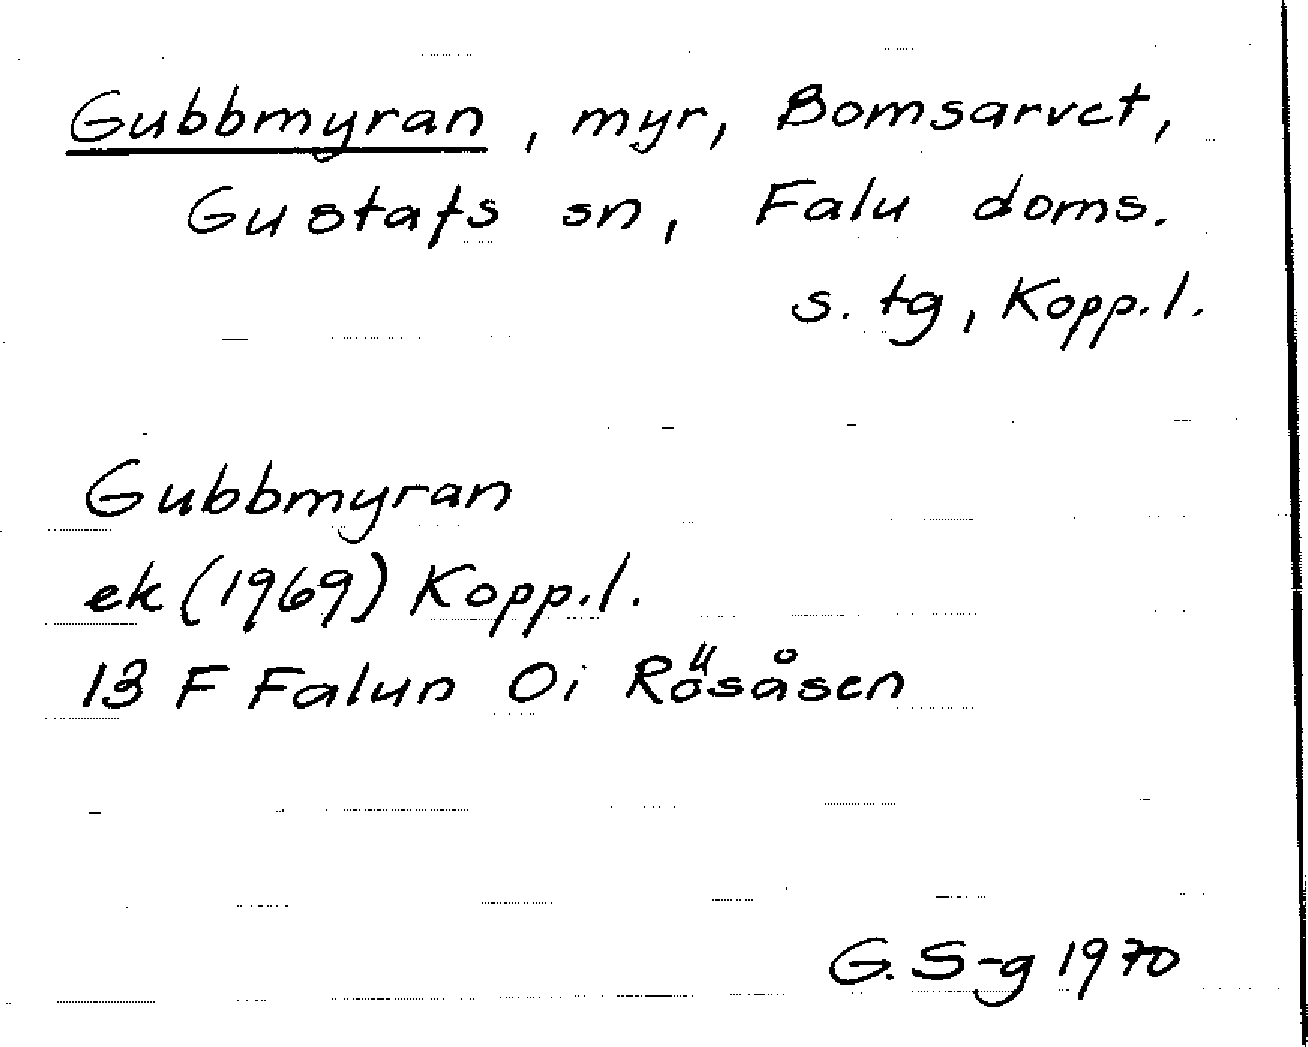 Gubbmyran, myr, Bomsarvet,
Gustafs sn, Falu doms.
s. tg, Kopp.l.
Gubbmyran
ek (1969) Kopp.l.
13 F Falun 0i Rösåsen
G. S-g 1970